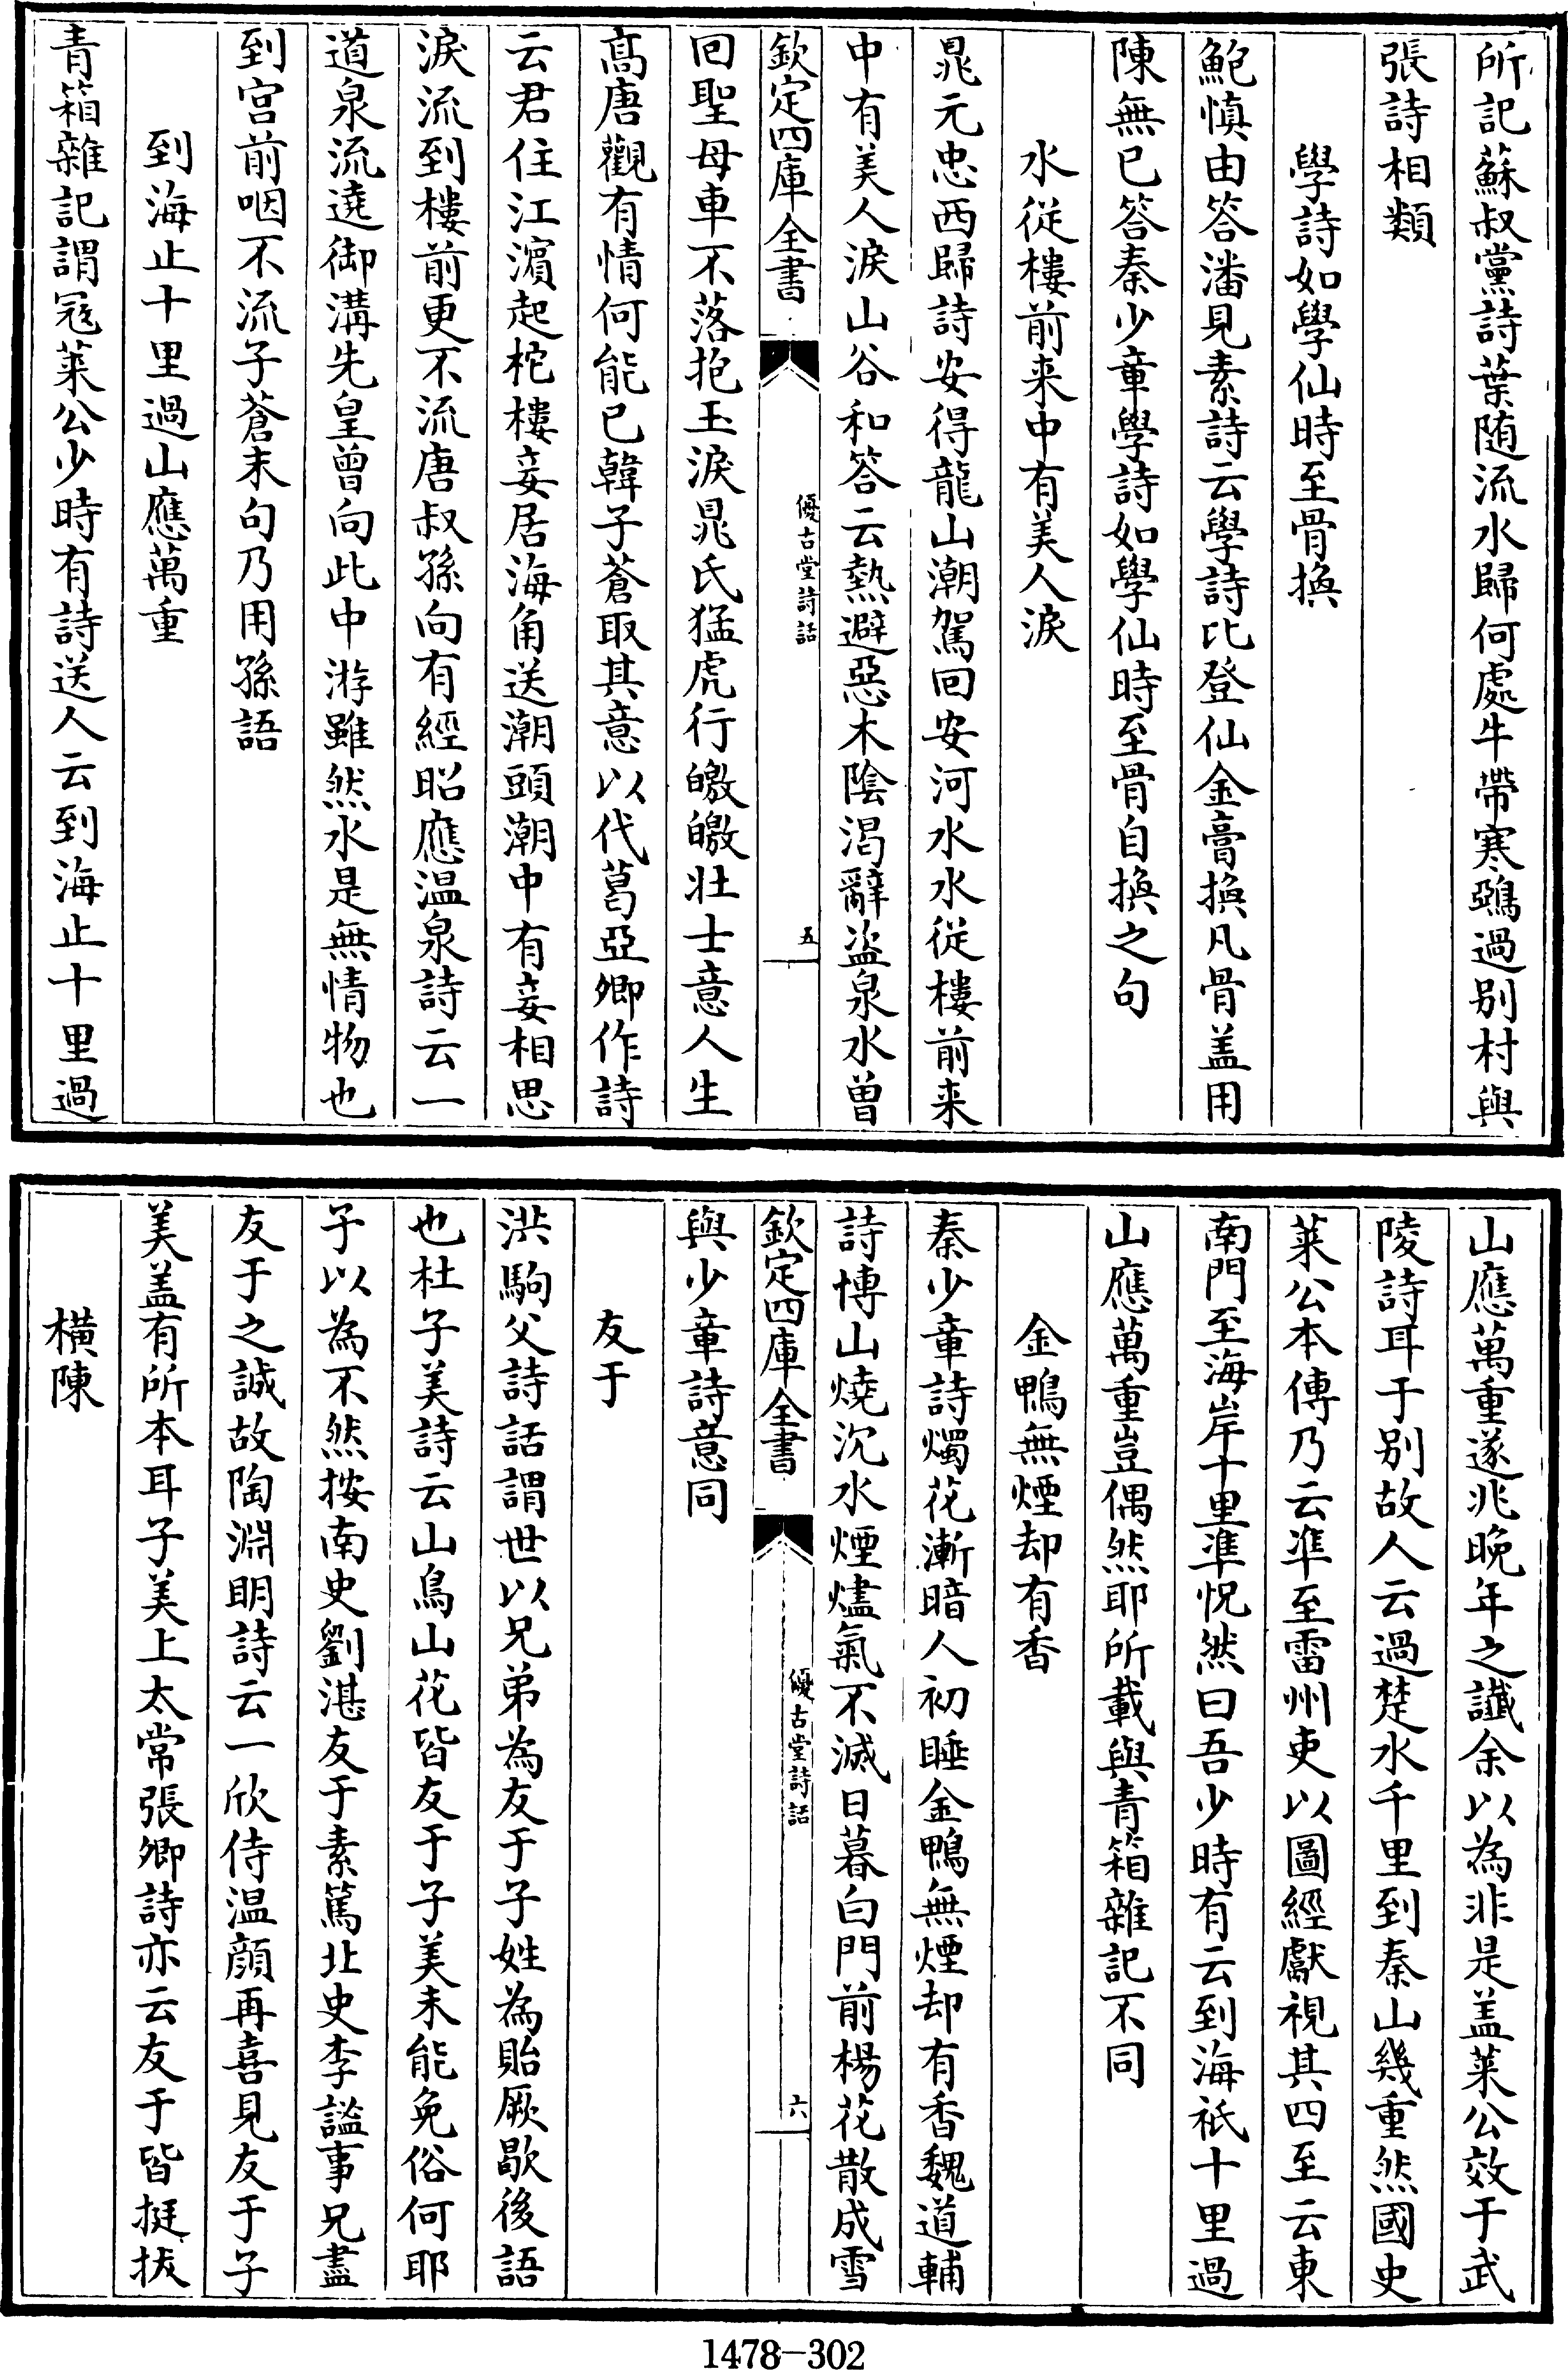 所記蘇叔黨詩葉随流水歸何處牛帶寒鵶過别村與
張詩相類
學詩如學仙時至骨換
鮑慎由答潘見素詩云學詩比登仙金膏換凡骨盖用
陳無已答秦少章學詩如學仙時至骨自換之句
水從樓前来中有美人淚
晁元忠西歸詩安得龍山潮駕回安河水水從樓前来
中有美人淚山谷和答云熱避惡木陰渴辭盜泉水曽
欽定四庫全書
優古堂詩話
五
回聖母車不落抱玉淚晁氏猛虎行皦皦壯士意人生
髙唐觀有情何能已韓子蒼取其意以代葛亞卿作詩
云君住江濵起柁樓妾居海角送潮頭潮中有妾相思
淚流到樓前更不流唐叔孫向有經昭應温泉詩云一
道泉流遶御溝先皇曾向此中游雖然水是無情物也
到宫前咽不流子蒼末句乃用孫語
到海止十里過山應萬重
青箱雜記謂冦萊公少時有詩送人云到海止十里過
山應萬重遂兆晚年之讖余以為非是盖萊公效于武
陵詩耳于别故人云過楚水千里到秦山幾重然國史
萊公本傳乃云凖至雷州吏以圖經獻視其四至云東
南門至海岸十里凖怳然曰吾少時有云到海祗十里過
山應萬重豈偶然耶所載與青箱雜記不同
金鴨無煙却有香
秦少章詩燭花漸暗人初睡金鴨無煙却有香魏道輔
詩博山燒沉水煙燼氣不滅日暮白門前楊花散成雪
欽定四庫全書
優古堂詩話
六
與少章詩意同
友于
洪駒父詩話謂世以兄弟為友于子姓為貽厥歇後語
也杜子美詩云山鳥山花皆友于子美未能免俗何耶
子以為不然按南史劉湛友于素篤北史李謐事兄盡
友于之誠故陶淵明詩云一欣侍温顔再喜見友于子
美盖有所本耳子美上太常張卿詩亦云友于皆挺拔
横陳
1478-302